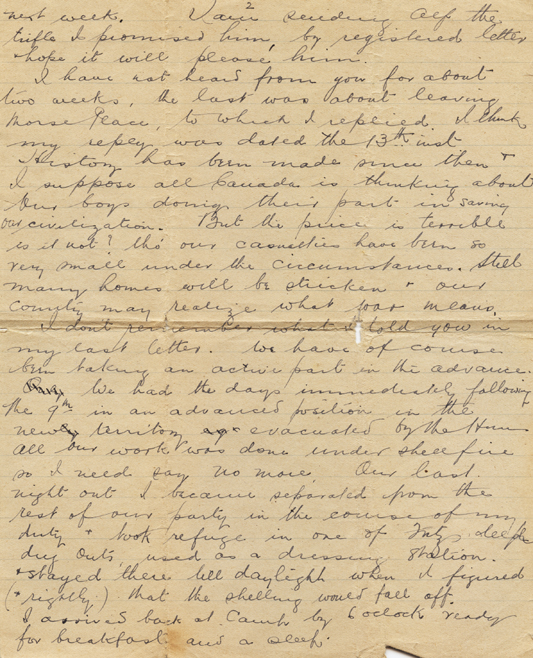 2
next week. I am sending Alf the
trifle I promised him, by registered letter
& hope it will please him.
I have not heard from you for about
two weeks, the last was about leaving
Morse Place, to which I replied. I think
my reply was dated the 13th inst.
History has been made since then &
I suppose all Canada is thinking about
Our boys doing their part in saving
our civilization. But the price is terrible
is it not? tho' our casualties have been so
very small under the circumstances. Still
many homes will be stricken & our
country may realize what war means.
I don't remember what I told you in
my last letter. We have of course
been taking an active part in the advance.
We had the days immediately following
the 9th in an advanced position in the
new territory evacuated by the Huns
All our work was done under shellfire
so I need say no more. Our last
night out I became separated from the
rest of our party in the course of my
duty & took refuge in one of Fritz deep
dug outs, used as a dressing station.
& stayed there till daylight when I figured
(& rightly) that the shelling would fall off.
I arrived back at Camp by 6 oclock ready
for breakfast and a sleep.